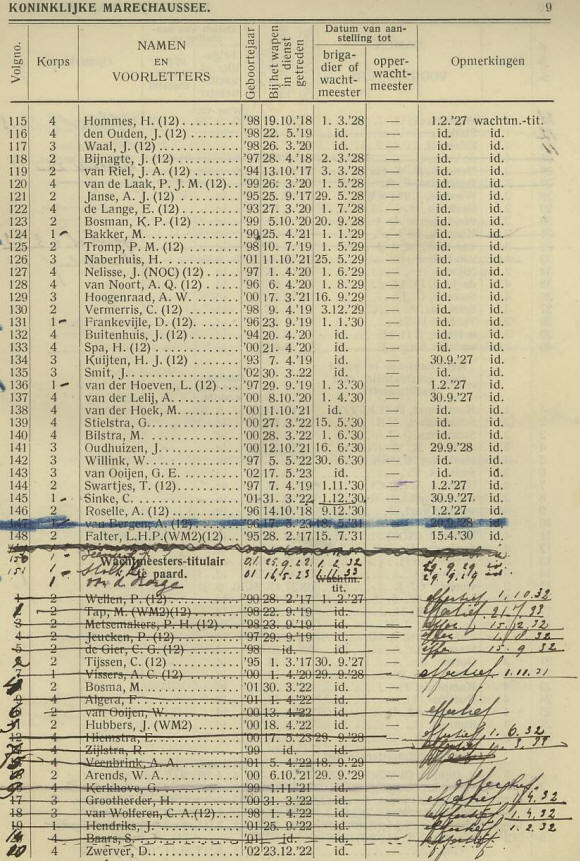 KONINKLIJKE MARECHAUSSEE. 9
Volgno. Korps NAMEN EN VOORLETTERS Geboortejaar Bij het wapen in dienst getreden Datum van aanstelling tot brigadier of wachtmeester opperwachtmeester Opmerkingen
115 4 Hommes, H. (12) '98 19.10.'18 1. 3.'28 — 1.2.'27 wachtm.-tit.
116 4 den Ouden, J. (12) '98 22. 5.'19 id. — id. id.
117 3 Waal, J. (12) '98 26. 3.'20 id. — id. id.
118 2 Bijnagte, J. (12) '97 28. 4.'18 2. 3.'28 — id. id.
119 2 van Riel, J. A. (12) '94 13.10.'17 3. 3.'28 — id. id.
120 4 van de Laak, P. J. M. (12) '99 26. 3.'20 1. 5.'28 — id. id.
121 2 Janse, A. J. (12) '95 25. 9.'17 29. 5.'28 — id. id.
122 4 de Lange, E. (12) '93 27. 3.'20 1. 7.'28 — id. id.
123 2 Bosman, K. P. (12) '99 5.10.'20 20. 9.'28 — id. id.
124 1 Bakker, M. '99 25. 4.'21 1. 1.'29 — id. id.
125 2 Tromp, P. M. (12) '98 10. 7.'19 1. 5.'29 — id. id.
126 3 Naberhuis, H. '01 11.10.'21 25. 5.'29 — id. id.
127 4 Nelisse, J. (NOC) (12) '97 1. 4.'20 1. 6.'29 — id. id.
128 4 van Noort, A. Q. (12) '96 6. 4.'20 1. 8.'29 — id. id.
129 3 Hoogenraad, A. W. '00 17. 3.'21 16. 9.'29 — id. id.
130 2 Vermerris, C. (12) '98 9. 4.'19 3.12.'29 — id. id.
131 1 Frankevijle, D. (12) '96 23. 9.'19 1. 1.'30 — id. id.
132 4 Buitenhuis, J. (12) '94 20. 4.'20 id. — id. id.
133 4 Spa, H. (12) '00 21. 4.'20 id. — id. id.
134 3 Kuijten, H. J. (12) '93 7. 4.'19 id. — 30.9.'27 id.
135 3 Smit, J. '02 30. 3.'22 id. — id. id.
136 1 van der Hoeven, L. (12) '97 29. 9.'19 1. 3.'30 — 1.2.'27 id.
137 4 van der Lelij, A. '00 8.10.'20 1. 4.'30 — 30.9.'27 id.
138 4 van der Hoek, M. '00 11.10.'21 id. — id. id.
139 4 Stielstra, G. '00 27. 3.'22 15. 5.'30 — id. id.
140 4 Bilstra, M. '00 28. 3.'22 1. 6.'30 — id. id.
141 3 Oudhuizen, J. '00 12.10.'21 16. 6.'30 — 29.9.'28 id.
142 3 Willink, W. '97 5. 5.'22 30. 6.'30 — id. id.
143 3 van Ooijen, G. E. '02 17. 5.'23 id. — id. id.
144 2 Swartjes, T. (12) '97 7. 4.'19 1.11.'30 — 1.2.'27 id.
145 1 Sinke, C. '01 31. 3.'22 1.12.'30 — 30.9.'27 id.
146 2 Roselle, A. (12) '96 14.10.'18 9.12.'30 — 1.2.'27 id.
147 1 van Bergen, A. (12) '96 17. 5.'23 18. 5.'31 — 29.9.'28 id.
148 2 Falter, L.H.P. (WM2) (12) '98 28. 2.'17 15. 7.'31 — 15.4.'30 id.
150 1 01 25.9.22 1. 2 32 29.9.29
Wachtmeesters-titulair
151 1 01 16.5.23 1.11.33 29.9.29
te paard.
Wachtm. tit.
1 2 Wellen, P. (12) '90 28. 2.'17 1. 2.'27 effectief 1.10.32
2 2 Tap, M. (WM2) (12) '98 22. 9.'19 id.
3 2 Metsemakers, P. H. (12) '98 23. 9.'19 id. 15.12.32
4 2 Jeucken, P. (12) '97 29. 9.'19 id. 32
5 2 de Gier, C. G. (12) '98 id. id. 15 9 32
2 Tijssen, C. (12) '95 1. 3.'17 30. 9.'27
7 1 Vissers, A. C. (12) '00 1. 4.'20 29. 9.'28 — effectief 1.11.31
2 Bosma, M. '01 30. 3.'22 id. —
4 Algera, F. '01 1. 4.'22 id. —
2 van Ooijen, W. '00 13. 4.'22 id. — effectief
2 Hubbers, J. (WM2) '00 18. 4.'22 id. —
4 Hiemstra, E. '00 17. 5.'23 29. 9.'28 — effectief 1. 6.32
4 Zijlstra, R. '99 id. id.
4 Veenbrink, A. A. '01 5. 4.'22 18. 9.'29
2 Arends, W. A. '00 6.10.'21 29. 9.'29 —
4 Kerkhove, G. '99 1.11.'21 id.
17 3 Grootherder, H. '00 31. 3.'22 id. — 4.32
18 3 van Wolferen, C. A. (12) '98 1. 4.'22 id. — effectief 1.4.32
19 1 Hendriks, J. '01 25. 9.'22 id. — 1. 2.32
4 Baars, S. '01 id. id.
4 Zwerver, D. '02 23.12.'22 id.